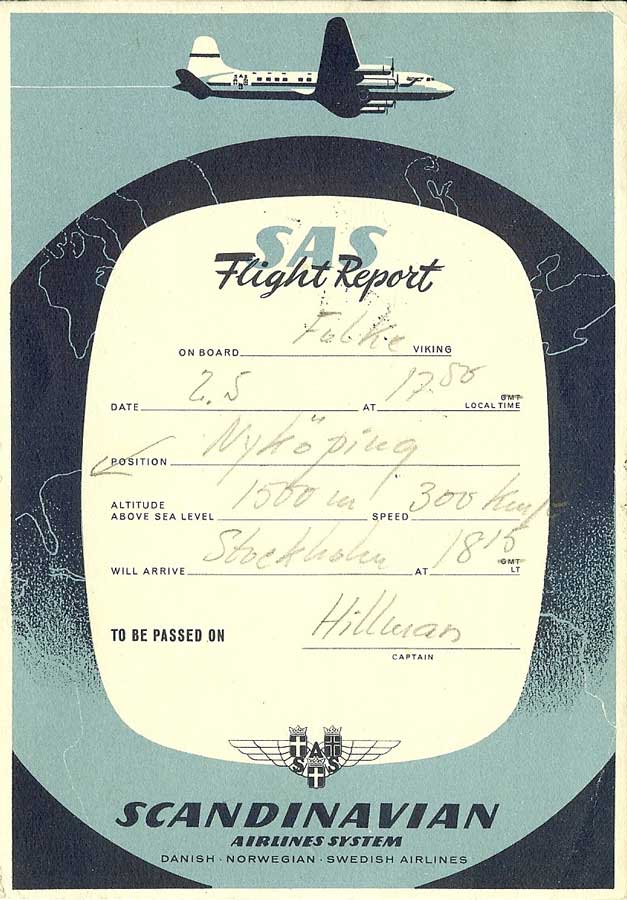 SAS
Flight Report
ON BOARD Falke VIKING
DATE 2.5 AT 17.50 GMT LOCAL TIME
POSITION Nyköping
ALTITUDE ABOVE SEA LEVEL 1500 m SPEED 300 Km/
WILL ARRIVE Stockholm AT 1815 GMT LT
TO BE PASSED ON Hillman
CAPTAIN
SAS
SCANDINAVIAN
AIRLINES SYSTEM
DANISH · NORWEGIAN · SWEDISH AIRLINES